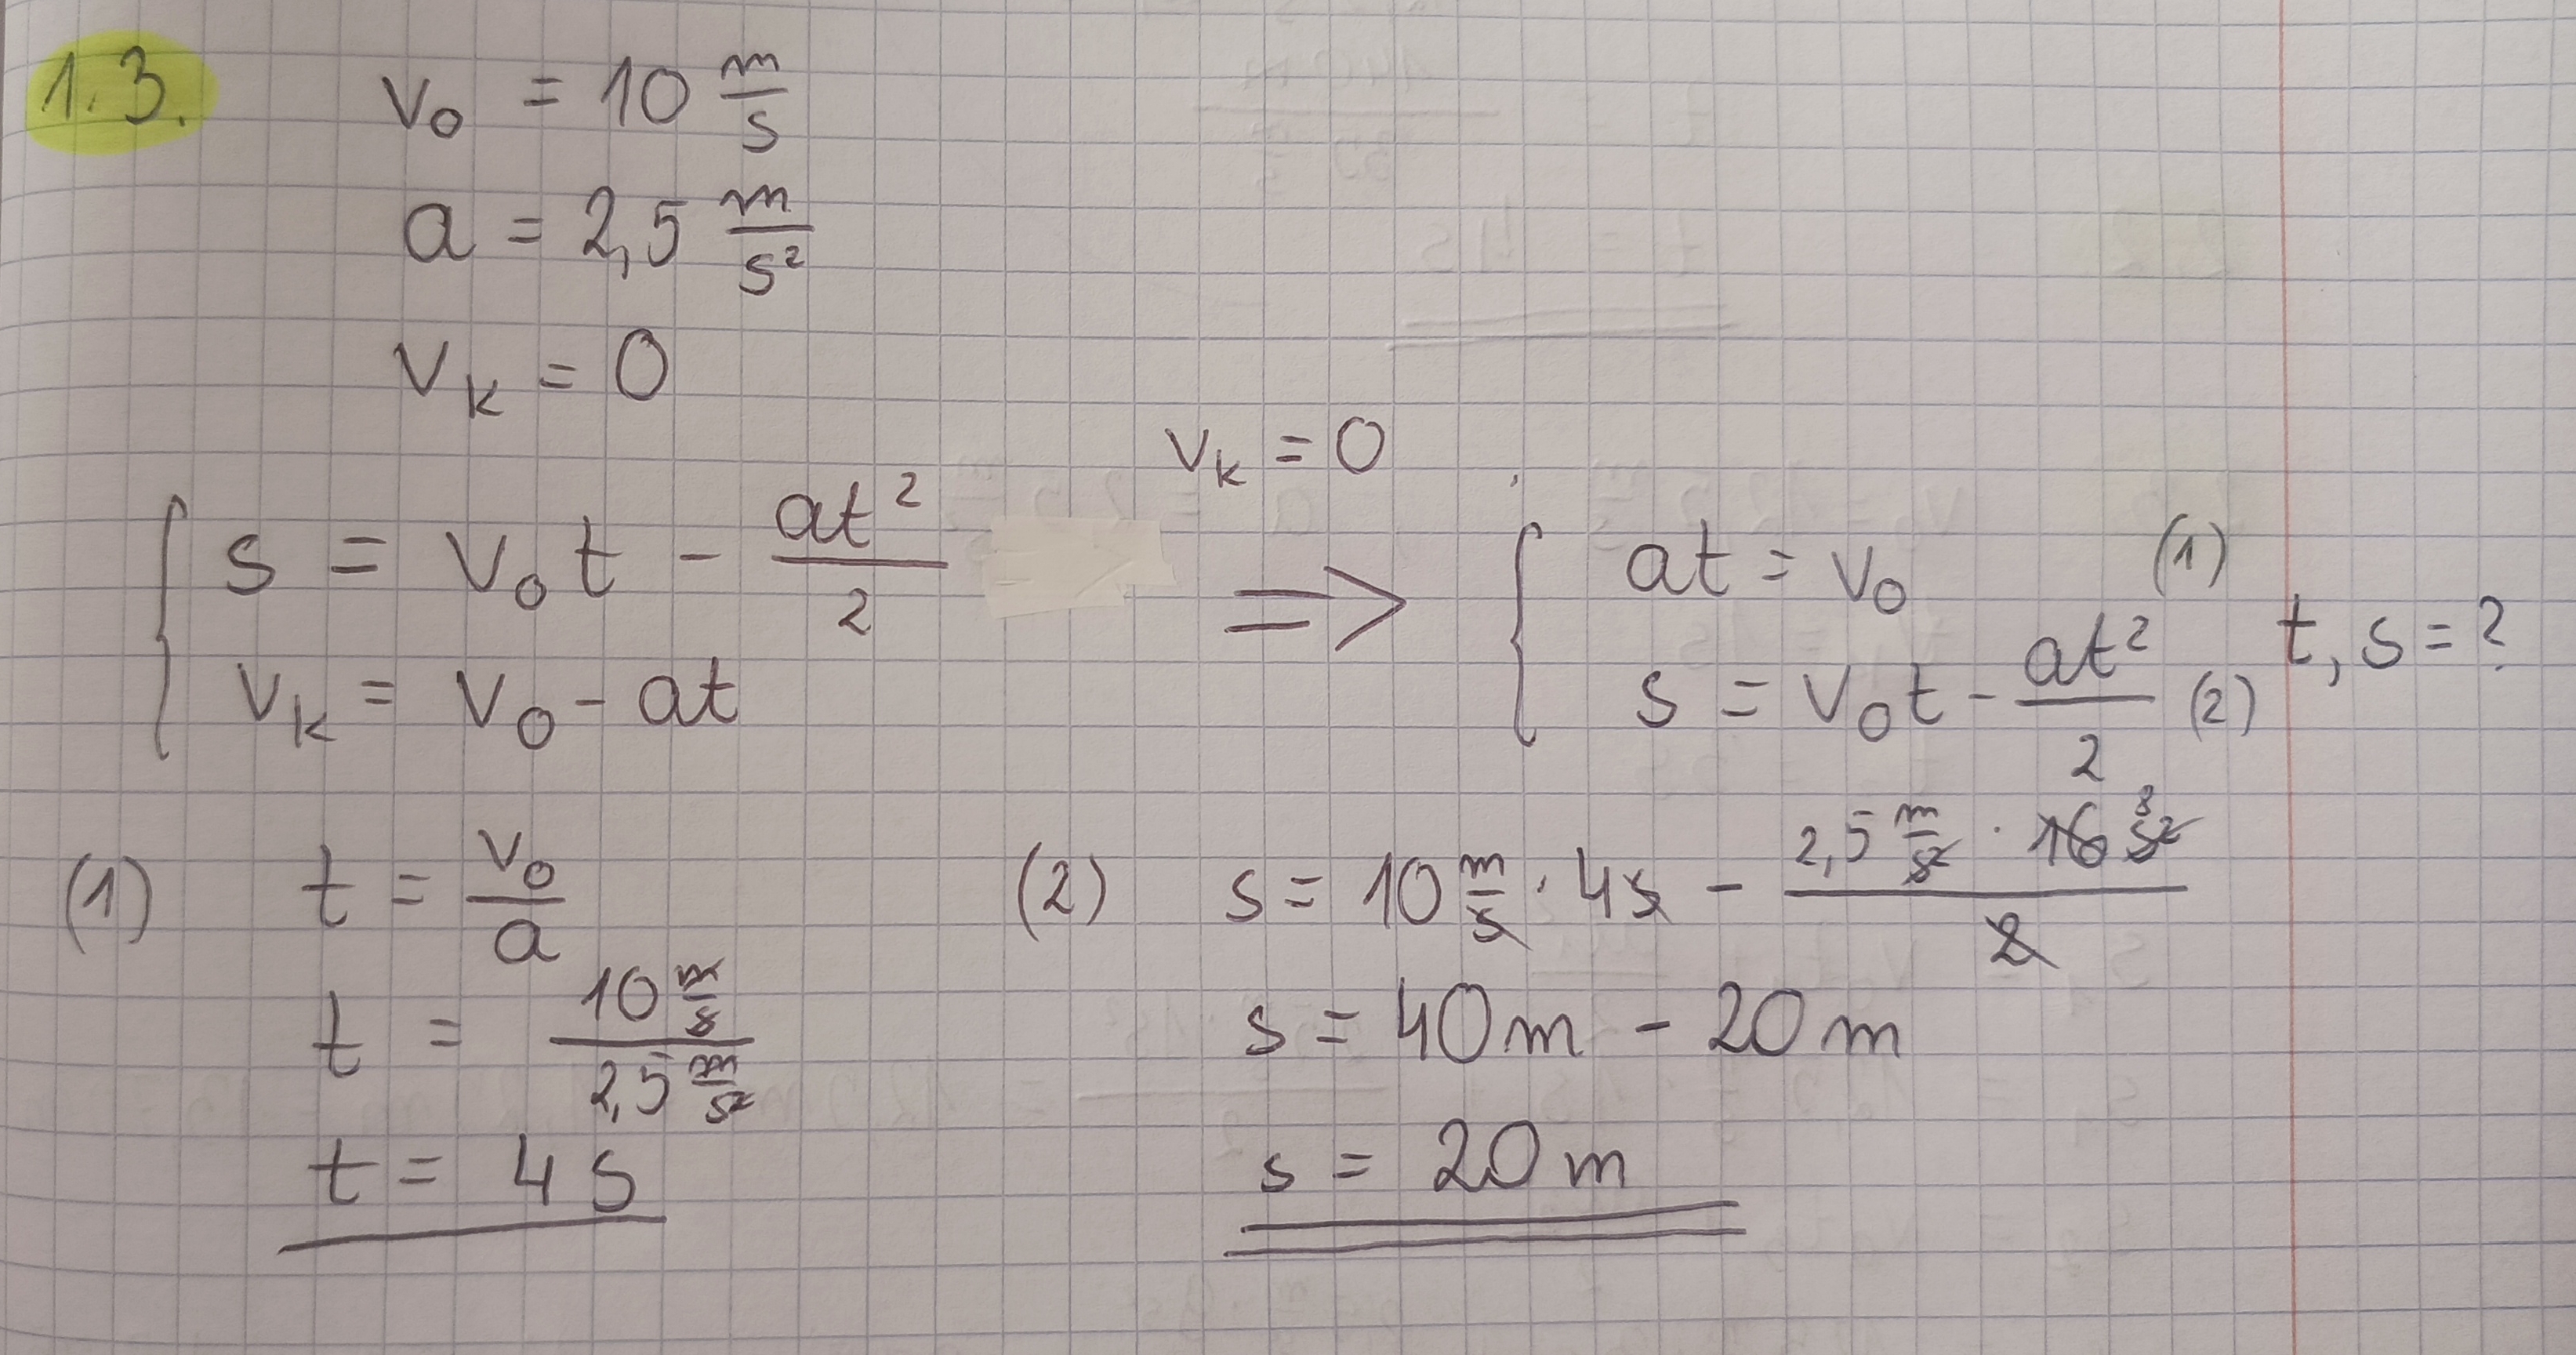 1.3. v₀ = 10 m/s
a = 2,5 m/s²
vₖ = 0
{ s = v₀t - at²/2
vₖ = v₀ - at
vₖ = 0
=>
{ at = v₀ (1)
s = v₀t - at²/2 (2)
t, s = ?
(1) t = v₀/a
t = 10 m/s / 2,5 m/s²
t = 4 s
(2) s = 10 m/s · 4s - 2,5 m/s² · 16 8 s² / 2
s = 40m - 20m
s = 20m